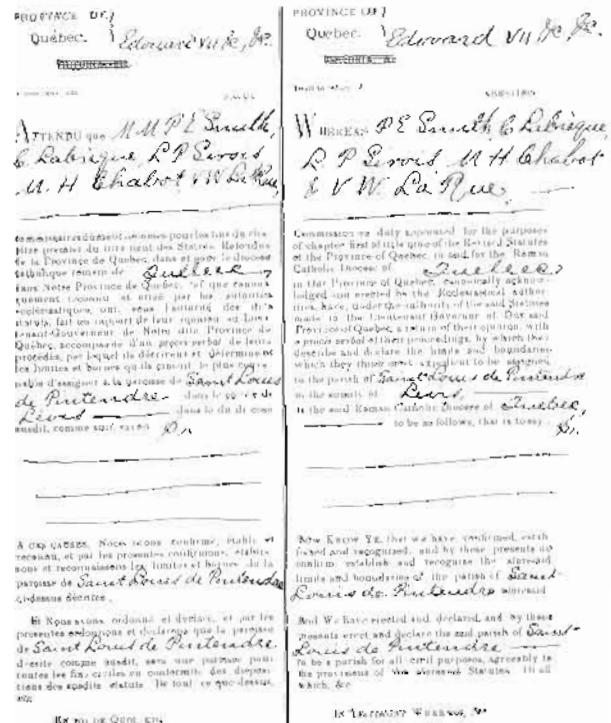 PROVINCE DE }
Québec. } Edouard VII &c, &c.
ATTENDU que M M P E Smith,
C Labrègue, L P Sirois
M. H Chabot & V W LaRue,
commissaires dûment nommés pour les fins du cha-
pitre premier du titre neuf des Statuts Refondus
de la Province de Québec, dans et pour le diocèse
catholique romain de Québec,
dans Notre Province de Québec, tel que canoni-
quement reconnu et érigé par les autorités
ecclésiastiques, ont, sous l'autorité des dits
statuts, fait un rapport de leur opinion au Lieu-
tenant-Gouverneur de Notre dite Province de
Québec, accompagné d'un procès verbal de leurs
procédés, par lequel ils décrivent et déterminent
les limites et bornes qu'ils croient le plus conve-
nable d'assigner à la paroisse de Saint Louis
de Pintendre dans le comté de
Lévis dans le dit diocèse
susdit, comme suit, savoir
A CES CAUSES, Nous avons confirmé, établi et
reconnu, et par les présentes confirmons, établis-
sons et reconnaissons les limites et bornes de la
paroisse de Saint Louis de Pintendre
ci-dessus décrites.
Et Nous avons ordonné et déclaré, et par les
présentes ordonnons et déclarons que la paroisse
de Saint Louis de Pintendre
érigée comme susdit, sera une paroisse pour
toutes les fins civiles en conformité des disposi-
tions des susdits statuts. De tout ce que dessus,
etc
EN FOI DE QUOI, ETC.
PROVINCE OF }
Quebec. } Edward VII &c, &c.
GREETING
WHEREAS P E Smith, C Labrègue,
L. P Sirois, M H Chabot
& V W. LaRue,
Commissioners duly appointed for the purposes
of chapter first of title nine of the Revised Statutes
of the Province of Quebec, in and for the Roman
Catholic Diocese of Quebec,
in Our Province of Quebec, canonically acknow-
ledged and erected by the Ecclesiastical author-
ities, have, under the authority of the said Statutes
made to the Lieutenant Governor of Our said
Province of Quebec, a return of their opinion, with
a procès verbal of their proceedings, by which they
describe and declare the limits and boundaries
which they think most expedient to be assigned
to the parish of Saint Louis de Pintendre
in the county of Levis,
in the said Roman Catholic Diocese of Quebec,
to be as follows, that is to say
NOW KNOW YE, that we have confirmed, estab-
lished and recognised, and by these presents do
confirm establish and recognise the aforesaid
limits and boundaries of the parish of Saint
Louis de Pintendre aforesaid
And We have erected and declared, and by these
presents erect and declare the said parish of Saint
Louis de Pintendre
to be a parish for all civil purposes, agreeably to
the provisions of the aforesaid Statutes. Of all
which, &c.
IN TESTIMONY WHEREOF, &c